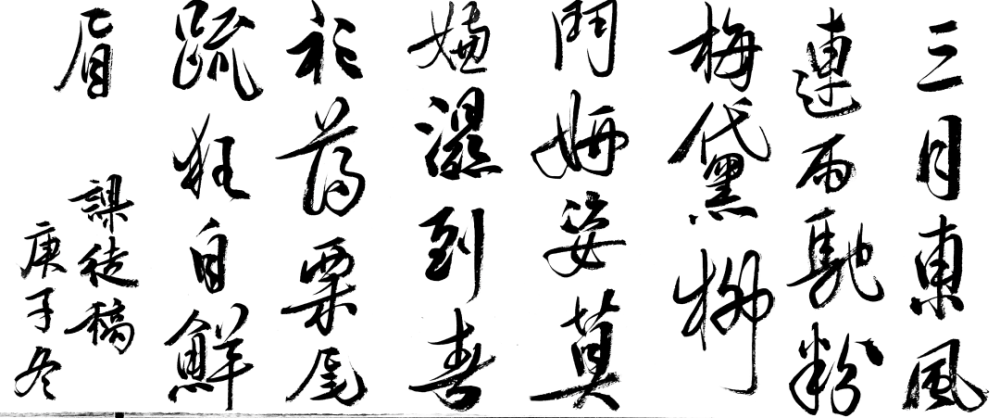 三月東風
連雨馳粉
梅黛黑柳
鬥妍姿莫
嫌濕到春
衫薄粟尾
疏狂自鮮
眉
課徒稿
庚子冬